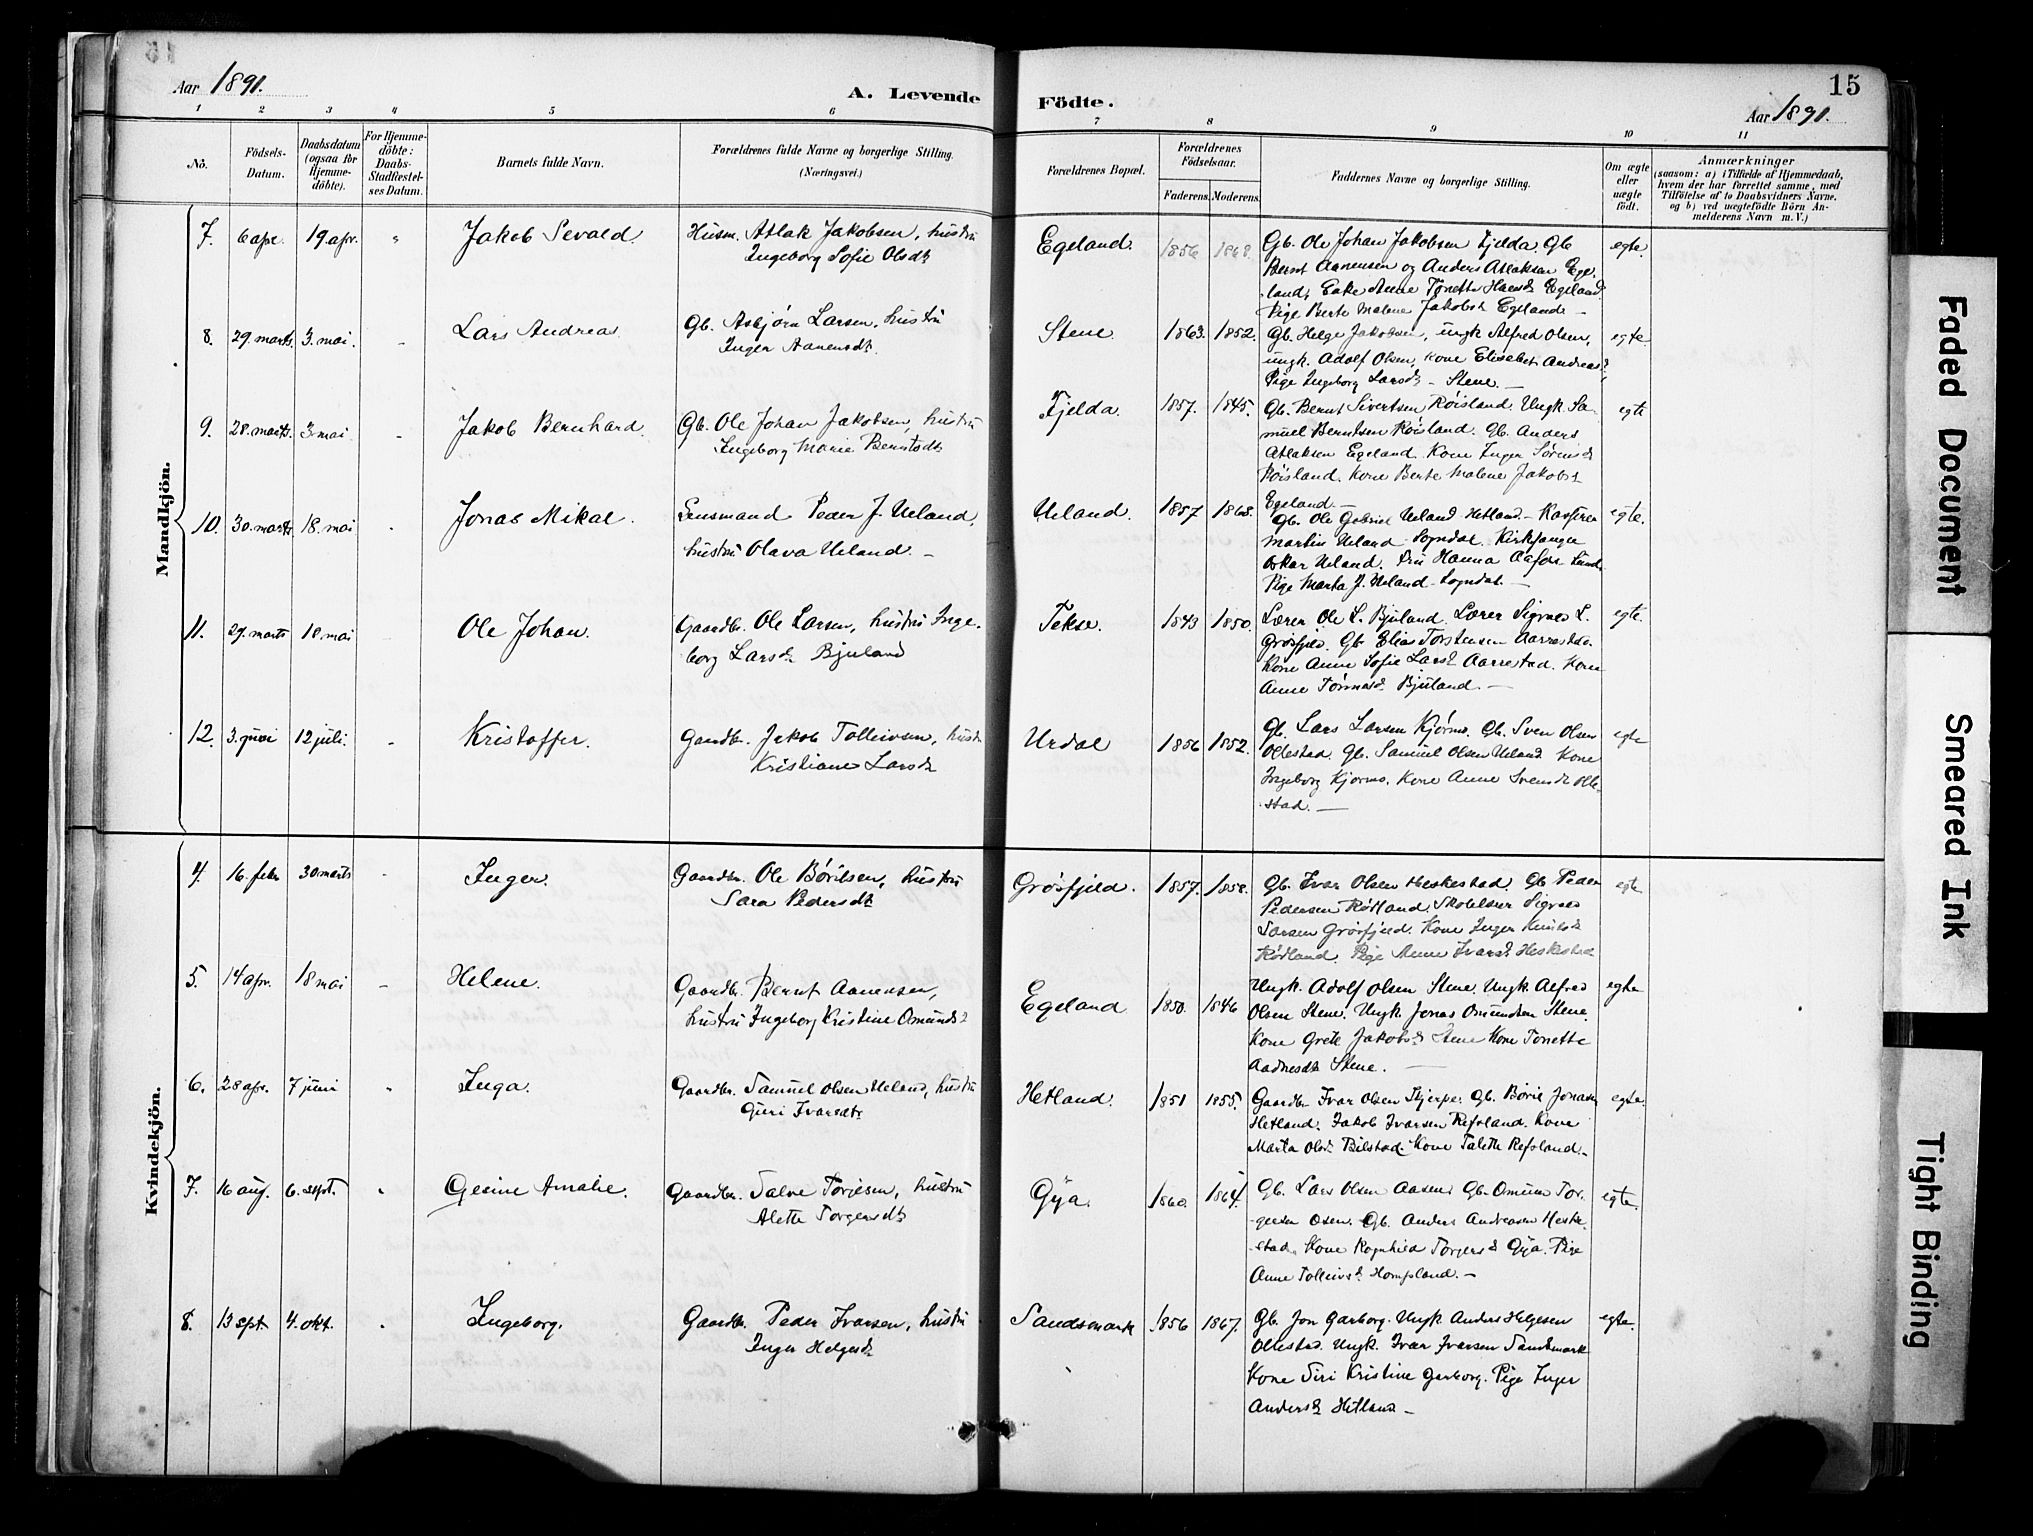 Aar 1891.
A. Levende Födte.
15
Aar 1891.
1 2 3 4 5 6 7 8 9 10 11
No.
Födsels-Datum.
Daabsdatum (ogsaa for Hjemme-döbte).
For Hjemme-döbte: Daabs-Stadfæstel-ses Datum.
Barnets fulde Navn.
Forældrenes fulde Navne og borgerlige Stilling. (Næringsvei.)
Forældrenes Bopæl.
Forældrenes Födselsaar.
Faderens. Moderens.
Faddernes Navne og borgerlige Stilling.
Om ægte eller uægte födt.
Anmærkninger
(saasom: a) i Tilfælde af Hjemmedaab,
hvem der har forrettet samme, med
Tilföielse af to Daabsvidners Navne.
og b) ved uægtefödte Börn An-
melderens Navn m. V.)
Mandkjön.
7. 6 apr. 19. apr. " Jakob Sevald. Husm. Atlak Jakobsen, hustru
Ingeborg Sofie Olsdt
Egeland. 1856 1868. Gb. Ole Johan Jakobsen Fjelda. Gb egte.
Bernt Aanensen og Anders Atlaksen Ege-
land, Enke Anne Tonette Egeland
Pige Berte Malene Jakobsd Egeland. —
8. 29. marts. 3. mai. " Lars Andreas Gb. Asbjørn Larsen, hustru
Inger Aanensdt.
Stene. 1863. 1852. Gb. Helge Jakobsen, ungk Alfred Olsen, egte.
ungk. Adolf Olsen, kone Elisabet Andreasd,
Pige Ingeborg Larsdt — Stene. —
9. 28. marts. 3. mai. " Jakob Bernhard. Gb. Ole Johan Jakobsen, hustru
Ingeborg Marie Berntsdt
Fjelda. 1857. 1845. Gb. Bernt Sivertsen Röisland. Ungk. Sa- egte
muel Berntsen Röisland. Gb. Anders
Atlaksen Egeland. Kone Inger Sörensd
Röisland. Kone Berte Malene Jakobsd
Egeland. —
10. 30. marts 18. mai " Jonas Mikal. Lensmand Peder J. Ueland,
hustru Olava Ueland. —
Ueland. 1857 1868. Gb. Ole Gabriel Ueland Hetland — Kasserer egte.
Martin Ueland Sogndal. Kirksanger
Oskar Ueland. Fru Hanna Lund.
Pige Marta J. Ueland — Sogndal. —
11. 29. marts 18 mai Ole Johan. Gaardbr. Ole Larsen, hustru Inge-
borg Larsdt Bjuland
Tekse. 1843 1850. Lærer Ole L. Bjuland. Lærer Sigvald L. egte.
Grösfjeld. Gb. Elias Torstensen Aarrestad.
Kone Anne Sofie Larsd Aarrestad. Kone
Anne Bjuland. —
12. 3. juni 12 juli. " Kristoffer. Gaardbr. Jakob Tolleivsen, hustr.
Kristiane Larsdt
Urdal 1856 1852. Gb. Lars Larsen Kjörmo. Gb. Sven Olsen egte
Ollestad. Gb. Samuel Olsen Ueland Kone
Ingeborg Kjörmo. Kone Anne Svensdt Olle-
stad. —
Kvindekjön.
4. 16. febr 30 marts " Inger. Gaardbr. Ole Börilsen, hustru
Sara Pedersdt
Grösfjeld. 1857. 1858. Gb. Ivar Olsen Heskestad. Gb. Peder egte
Pedersen Rötland. Skolelærer Sigvald
Larsen Grösfjeld. Kone Inger
Rötland. Pige Anne Ivarsd Heskestad
5. 14 apr. 18 mai " Helene. Gaardbr. Bernt Aanensen,
hustru Ingeborg Kristine Omundsd
Egeland 1850. 1846 Ungk. Adolf Olsen Stene. Ungk. Alfred egte
Olsen Stene. Ungk Jonas Omundsen Stene.
Kone Grete Jakobsd Stene Kone Tonette
Aadnesdt Stene. —
6. 28 apr. 7 juni " Inga. Gaardbr. Samuel Olsen Ueland, hustru
Guri Ivarsdt.
Hetland. 1851 1855. Gaardbr Ivar Olsen Skjerpe. Gb. Börie Jonasen egte.
Hetland. Jakob Ivarsen Refsland. Kone
Marta Olsd. Bilstad. Kone Talette Refsland. —
7. 16 aug. 6. sept. " Gesine Amalie. Gaardbr. Salve Torjesen, hustru
Alette Torgersdt
Gya. 1860. 1864. Gb. Lars Olsen Aasen. Gb. Omund Tor- egte.
gersen Osen. Gb. Anders Andreasen Heske-
stad. Kone Ragnhild Torgersd Gya. Pige
Anne Tolleivsd. Hompland. —
8. 13 sept. 4. okt. " Ingeborg. Gaardbr. Peder Ivarsen, hustru
Inger Helgesdt
Sandsmark 1856 1867. Gb. Jon Garborg. Ungk Anders Helgesen egte.
Ollestad. Ungk. Ivar Ivarsen Sandsmark
Kone Siri Kristine Garborg. Pige Inger
Andersd Hetland —
Faded Document
Smeared Ink
Tight Binding